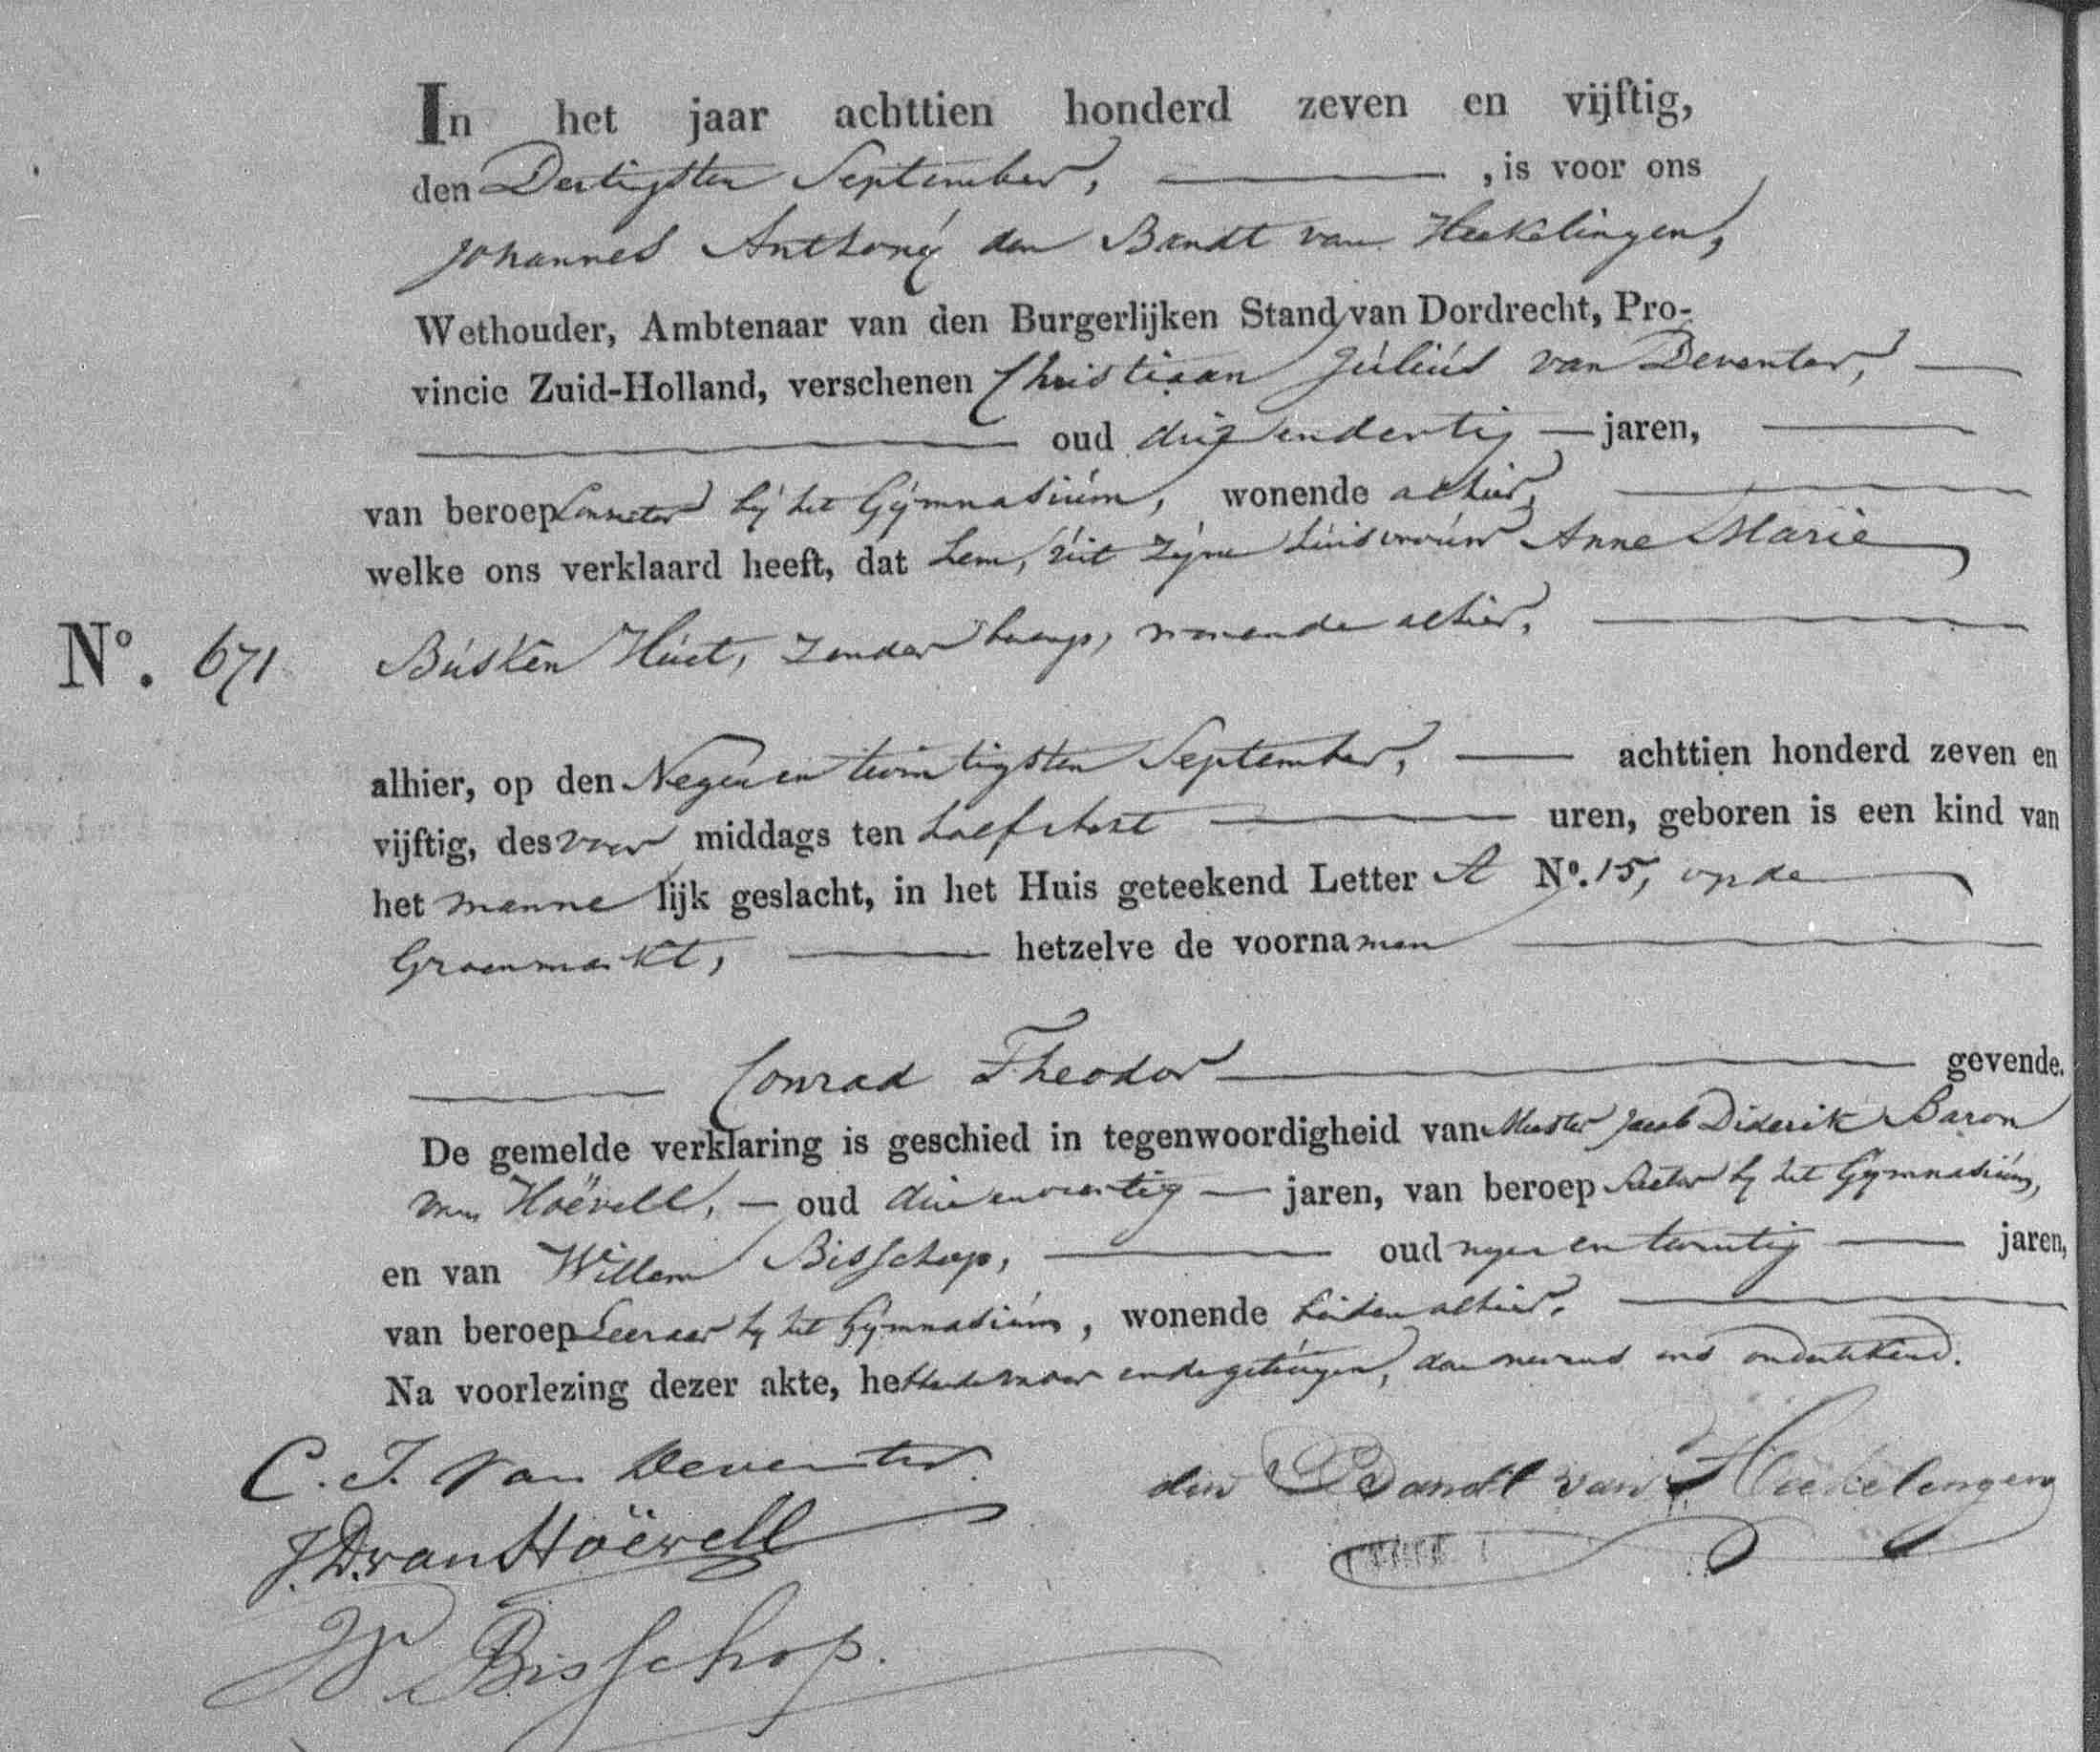 In het jaar achttien honderd zeven en vijftig,
den Dertigsten September, , is voor ons
Johannes Anthony den Bandt van Heekelingen,
Wethouder, Ambtenaar van den Burgerlijken Stand van Dordrecht, Pro-
vincie Zuid-Holland, verschenen Christiaan Julius van Deventer,
oud drieendertig jaren,
van beroep Conrector bij het Gymnasium, wonende alhier,
welke ons verklaard heeft, dat hem, uit zijne huisvrouw Anne Marie
No. 671 Busken Huet, zonder beroep, wonende alhier,
alhier, op den Negenentwintigsten September, achttien honderd zeven en
vijftig, des voor middags ten half acht uren, geboren is een kind van
het manne lijk geslacht, in het Huis geteekend Letter A No. 15, op de
Groenmarkt, hetzelve de voornamen
Conrad Theodor gevende.
De gemelde verklaring is geschied in tegenwoordigheid van Meester Jacob Diderik Baron
van Hoëvell, oud drieenveertig jaren, van beroep Rector bij het Gymnasium,
en van Willem Bisschop, oud negenentwintig jaren,
van beroep Leeraar bij het Gymnasium, wonende beiden alhier.
Na voorlezing dezer akte, hebben de vader en de getuigen, dan nevens ons onderteekend.
C. J. van Deventer. den Bandt van Heekelingen
J. D. van Hoëvell
W Bisschop.